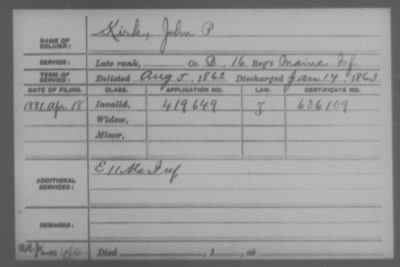 NAME OF SOLDIER: Kirk, John P
SERVICE: Late rank, Co. D, 16 Reg't Maine Inf
TERM OF SERVICE: Enlisted Aug 5, 1862 Discharged Jan 14, 1863
DATE OF FILING. CLASS. APPLICATION NO. LAW. CERTIFICATE NO.
1881 Apr 18 Invalid, 419649 636109
Widow,
Minor,
ADDITIONAL SERVICES: E 11 Me Inf
REMARKS:
Died , 1 , at